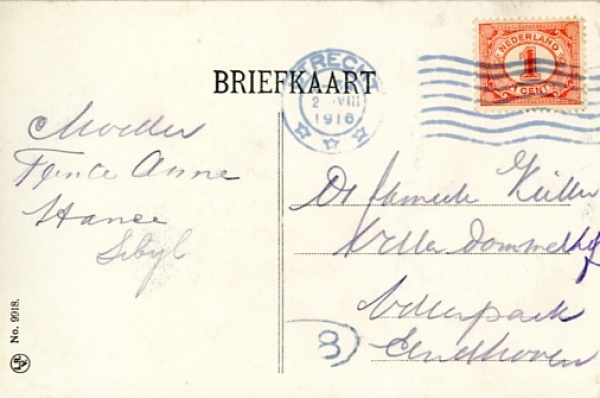 BRIEFKAART
NEDERLAND
1
1 CENT
UTRECHT
2 VIII
1916
Moeder
Tante Anne
Hanse
Sibyl
De familie
Villa Dommelhof
Villapark
Eindhoven
8
No. 9918.